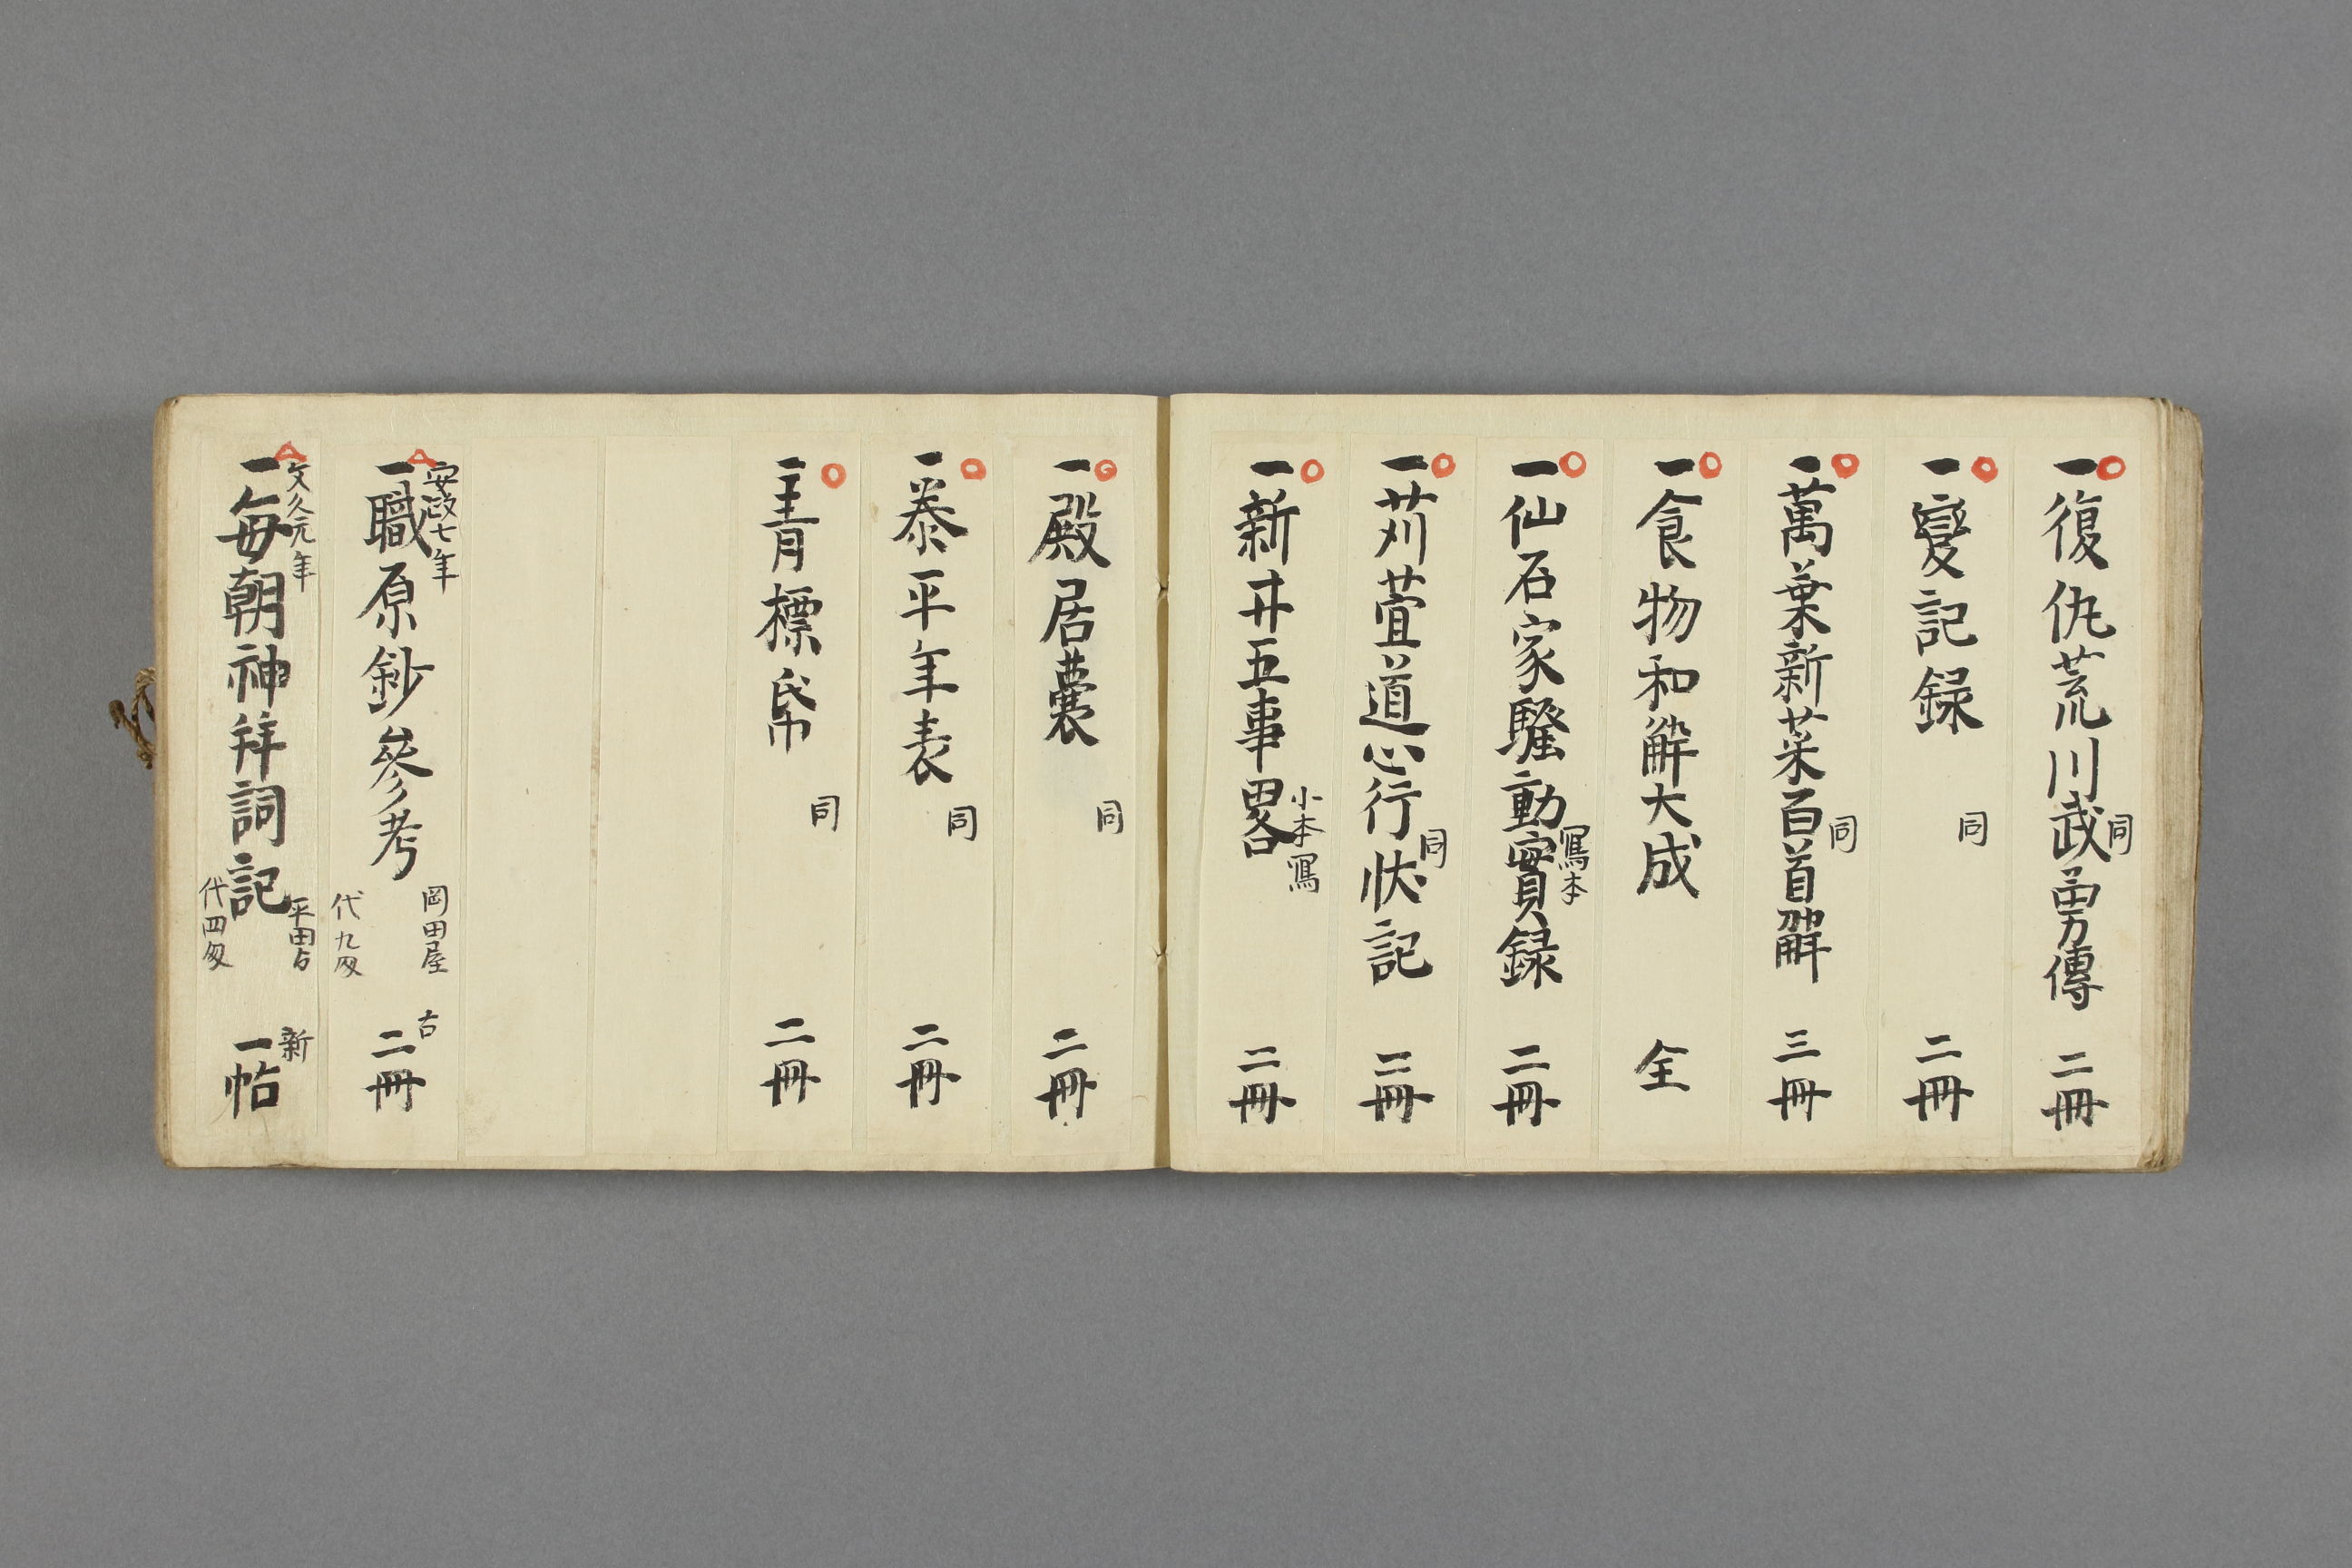 一復仇荒川武勇傳 同 二冊
一變記録 同 二冊
一萬葉新菜百首解 同 三冊
一食物和解大成 全
一仙石家騒動實録 寫本 二冊
一苅萱道心行状記 同 三冊
一新井五事畧 小本寫 二冊
一殿居嚢 同 二冊
一泰平年表 同 二冊
一青標帋 同 二冊
安政七年
一職原鈔參考 岡田屋 古 二冊
代九匁
文久元年
一毎朝神拜詞記 平田 新 一帖
代四匁